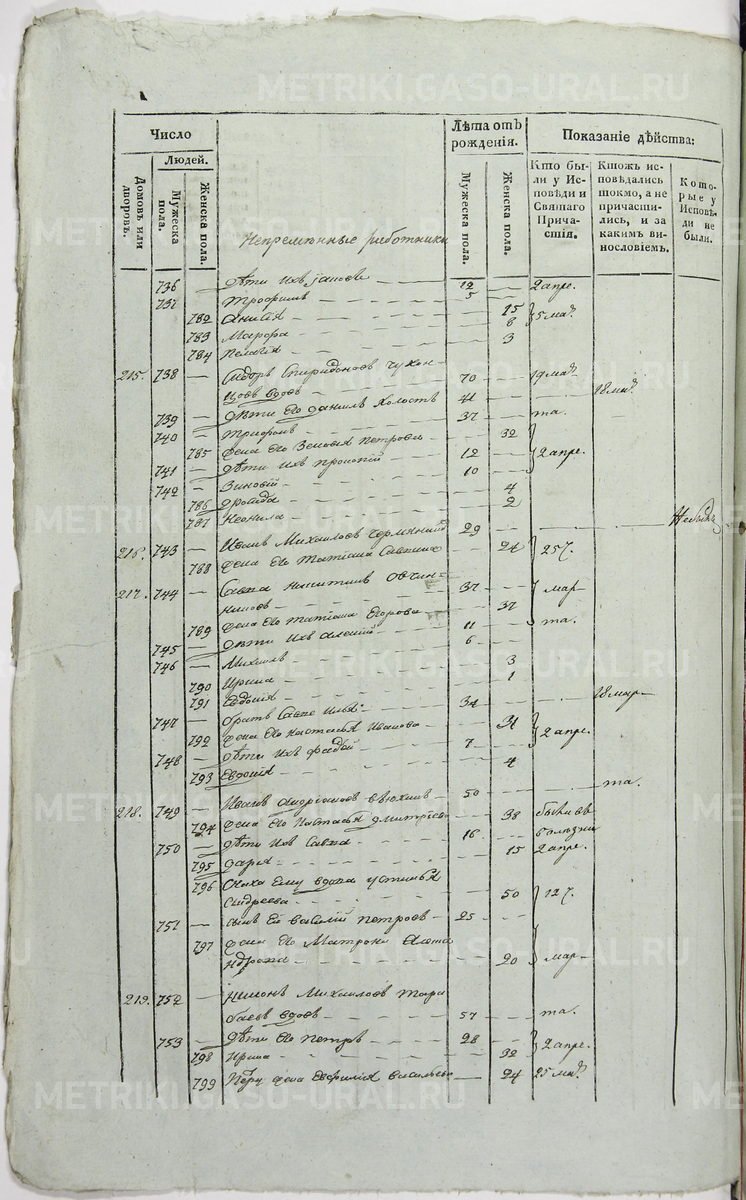 METRIKI.GASO-URAL.RU
Число
Людей.
Домовъ или дворовъ.
Мужеска пола.
Женска пола.
Непременные работники
Лѣта отъ рожденія.
Мужеска пола.
Женска пола.
Показаніе дѣйства:
Кто были у Исповѣди и Святаго Причастія.
Ктожъ исповѣдались токмо, а не причастились, и за какимъ винословіемъ.
Которые у Исповѣди не были.
736 — дѣти ихъ 12 2 апре.
737 Трофимъ 5
782 Анисія 15 5 
783 Марфа 6
784 Пелагія 3
215. 738 — Сидоръ Спиридоновъ Чухон-
цовъ вдовъ 70 19
739 — дѣти его Данилъ холостъ 41 18
740 — Трифонъ 37 та.
785 жена его Зеновія Петрова 32
741 — дѣти ихъ Прокопій 12 2 апре.
742 — Зиновій 10
786 4
787 Неонила 2
216. 743 — Иванъ Михаиловъ 29
788 жена его Татіана 24 257.
217. 744 — Савва Никитинъ Овчин-
никовъ 37 мар-
789 жена его Татіана Егорова 37 та.
745 — дѣти ихъ Алексій 11
746 — Михаилъ 6
790 Ирина 3
791 Евдокія 1
747 — братъ Савве Илья 34 18 мар-
792 жена его Настасья Иванова 31
748 — дѣти ихъ Фадѣй 7 2 апре.
793 Евдокія 4
218. 749 — Иванъ Андріановъ 50 та.
794 жена его Настасья Дмитріева 38
750 — дѣти ихъ Савва 16 болезни
795 Дарья 15 2 апре.
796 Сноха ему вдова Устинья
Андреева 50 127.
751 — сынъ ея Василій Петровъ 25
797 жена его Матрона Алекса
ндрова 20 мар-
219. 752 — Михаиловъ Тара
баевъ вдовъ 57 та.
753 — дѣти его Петръ 28
798 Ирина 32 2 апре.
799 Петру жена Евфимія Васильева 24 25